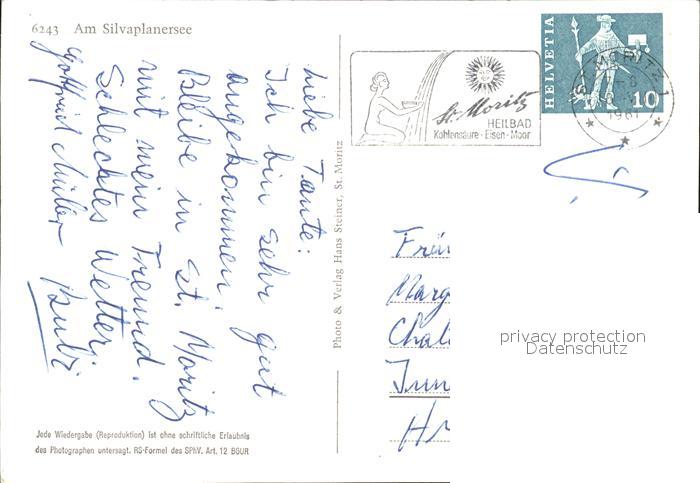 6243 Am Silvaplanersee
Liebe Tante:
Ich bin sehr gut
angekommen.
Bleibe in St. Moritz
mit mein Freund.
Schlechtes Wetter.
Gottfried Müller
Photo & Verlag Hans Steiner, St. Moritz
Jede Wiedergabe (Reproduktion) ist ohne schriftliche Erlaubnis
des Photographen untersagt. RS-Formel des SPhV. Art. 12 BGUR
St. Moritz
HEILBAD
Kohlensäure - Eisen - Moor
HELVETIA
10
ST. MORITZ 1
1961
Frä
Marg
Chal
privacy protection
Datenschutz